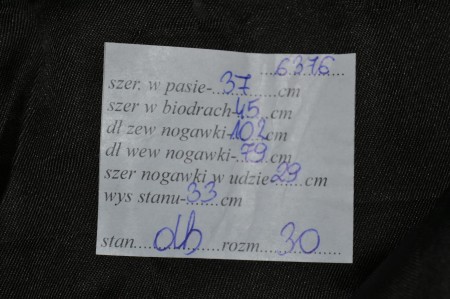 6376
szer. w pasie-37cm
szer w biodrach-45cm
dł zew nogawki-102cm
dł wew nogawki-79cm
szer nogawki w udzie29cm
wys stanu-33cm
stan....db....rozm....30